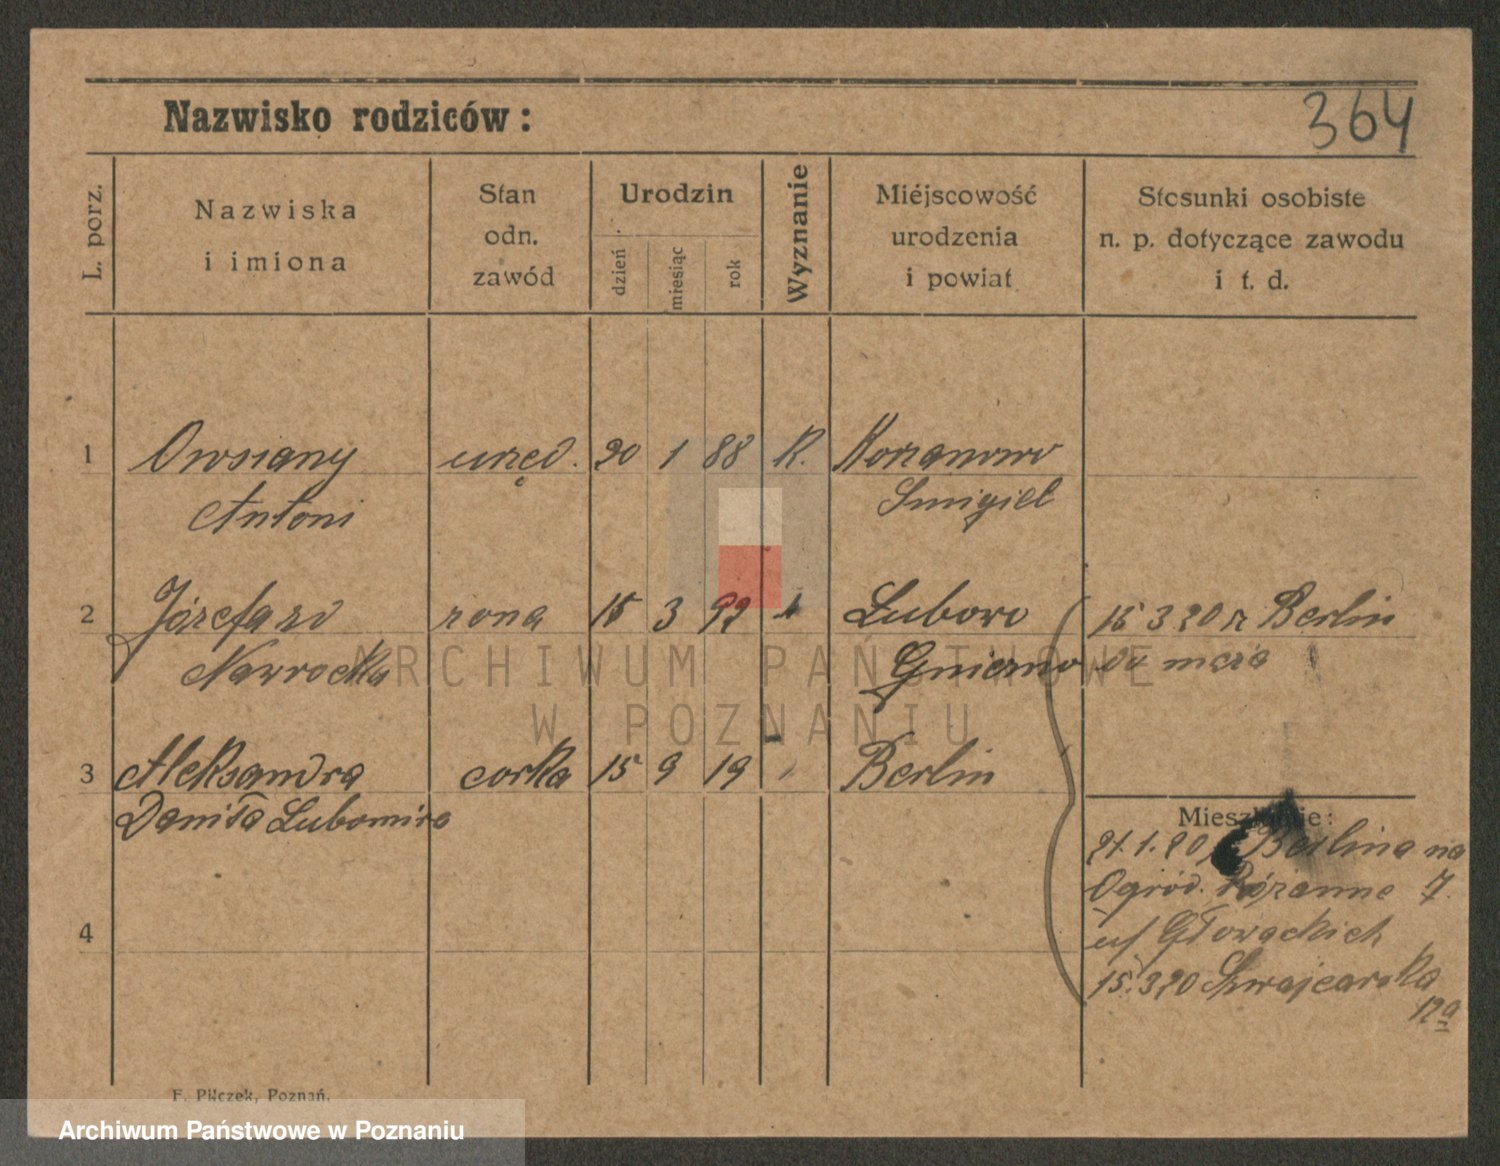 Nazwisko rodziców:
364
L. porz.
Nazwiska
i imiona
Stan
odn.
zawód
Urodzin
dzień
miesiąc
rok
Wyznanie
Miejscowość
urodzenia
i powiat
Stosunki osobiste
n. p. dotyczące zawodu
i t. d.
1 Owsiany urzęd. 20 1 88 R.
Antoni Smigiel
2 Józefa zd żona 15 3 92 Lubowo 15 3 20 z Berlin
Nawrocka Gniezno od męża
3 Aleksandra corka 15 9 19 Berlin
Daniła Lubomira
4
Mieszkanie:
21.1.20 z Berlina na
Ogród. Różanne 7.
u/ Głowackich
15.3 20 Szwajcarska
12a
F. Pilczek, Poznań.
ARCHIWUM PAŃSTWOWE
W POZNANIU
Archiwum Państwowe w Poznaniu